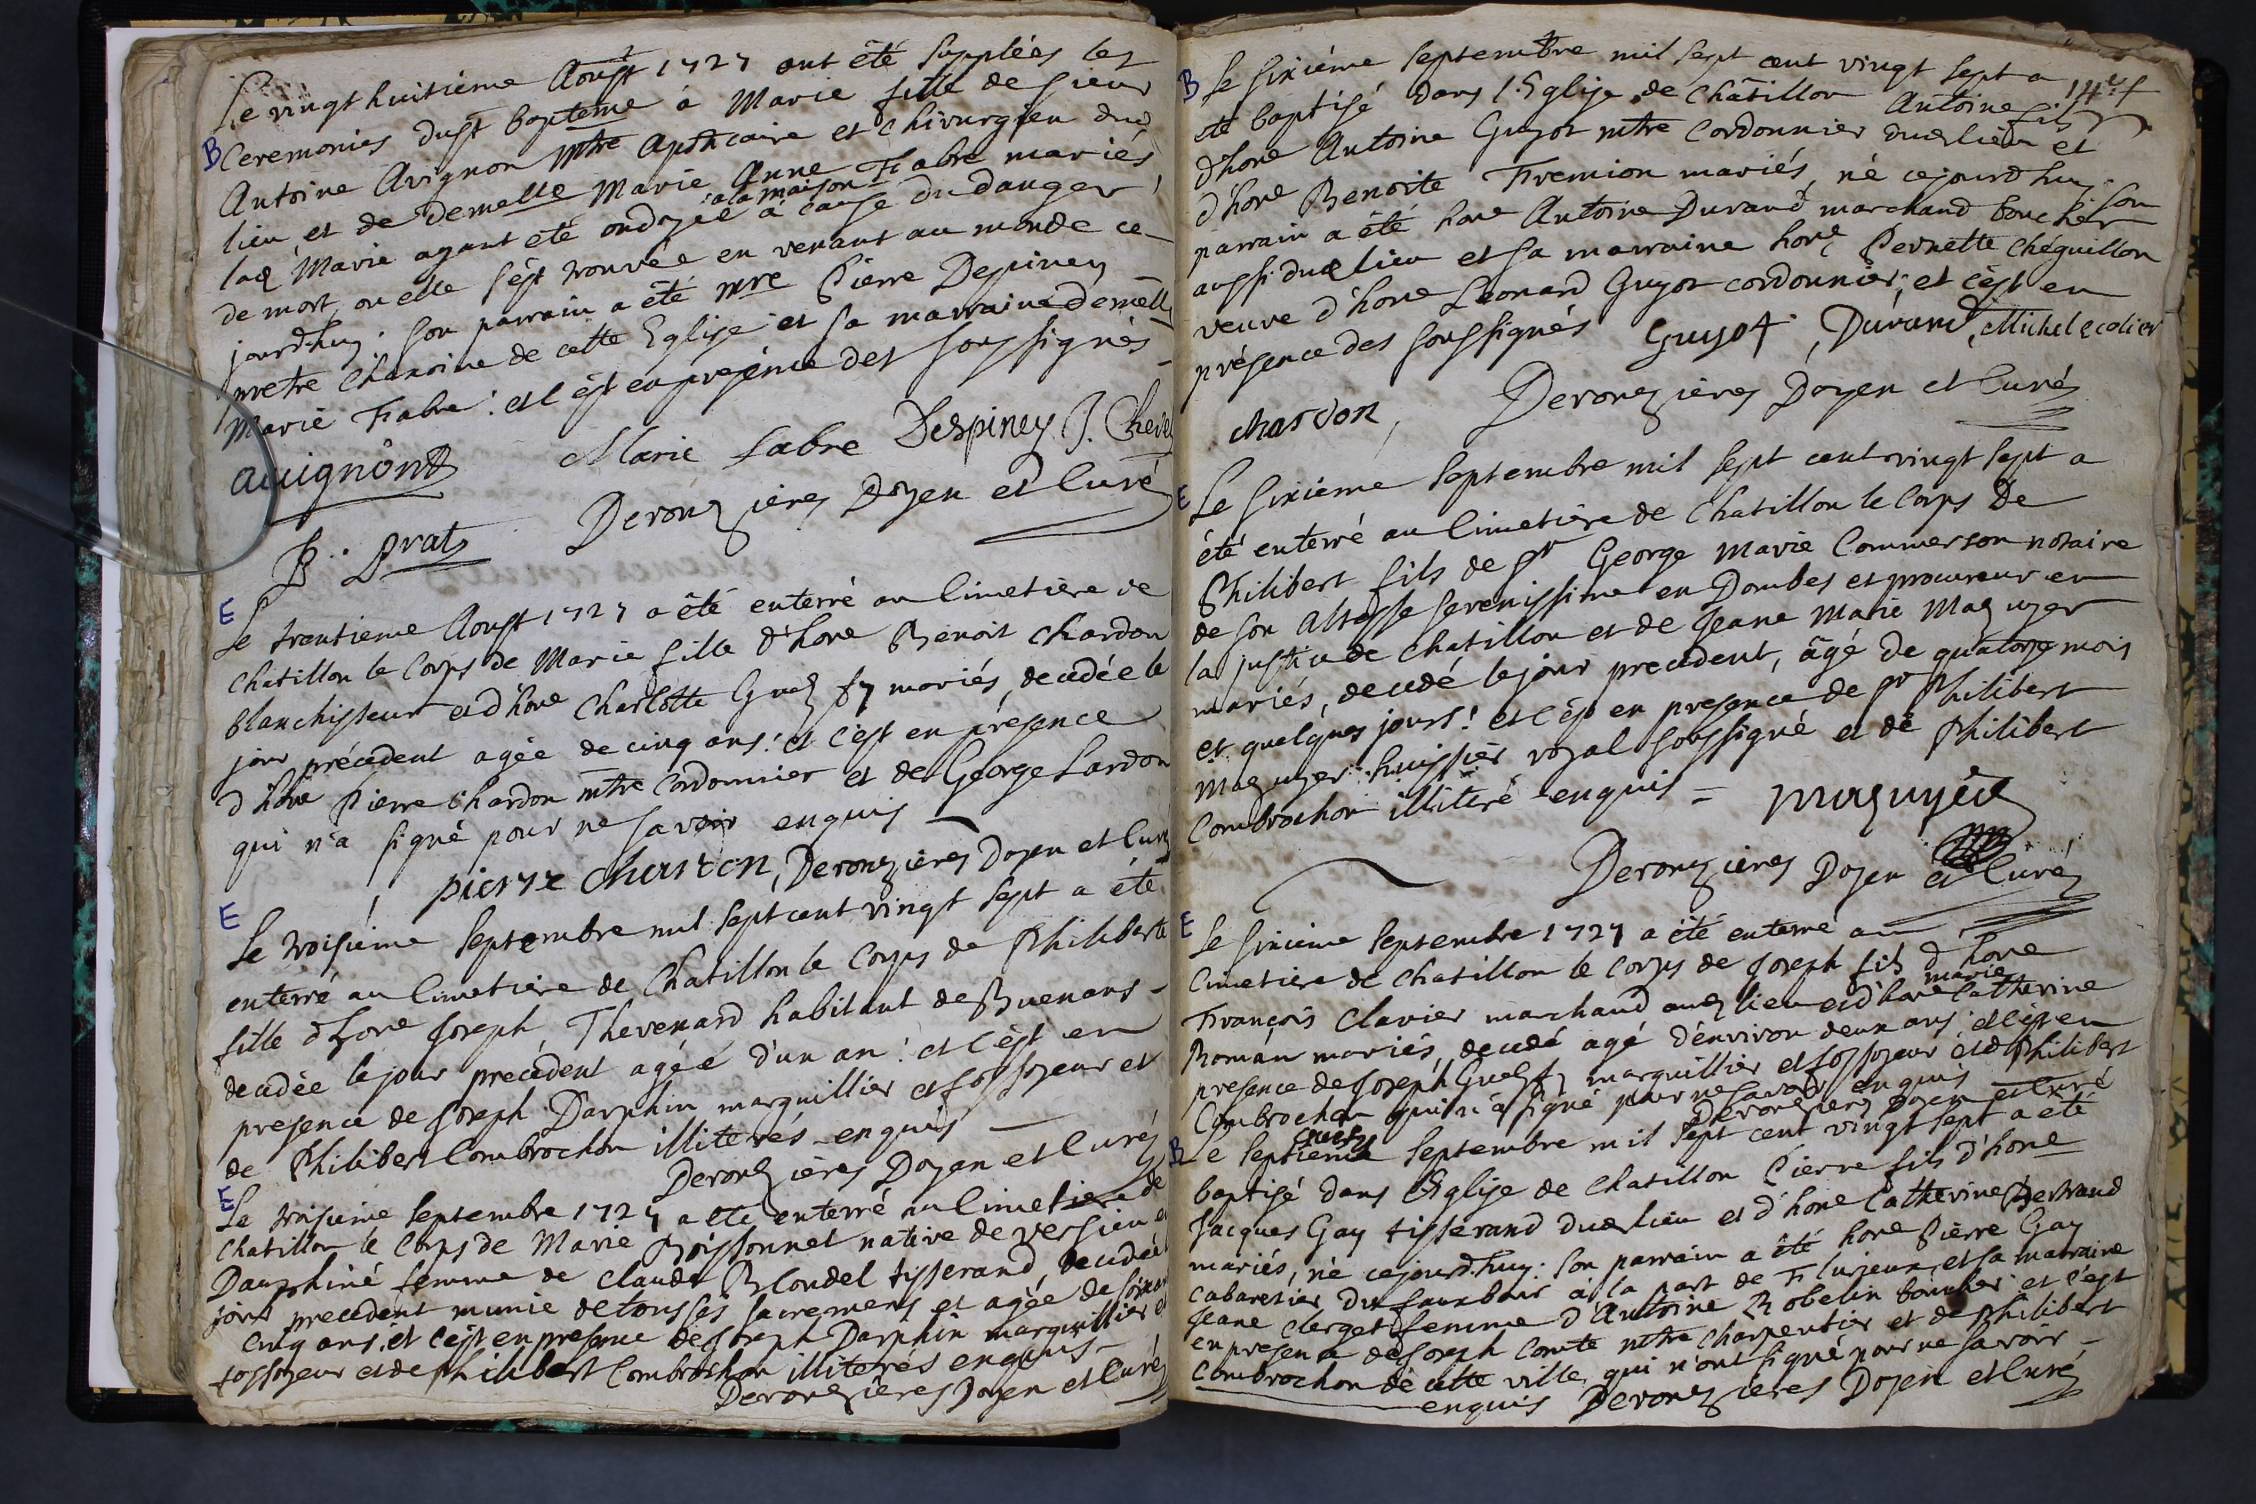 Le vingt huitiéme Aoust 1727 ont été supplées les
B Ceremonies dust bapteme á Marie fille de sieur
Antoine Avignon mtre apothcaire et chirurgien dud
lieu et de demelle Marie Anne Fabre mariés
lad Marie ayant été ondoyée a la maison á cause du danger
de mort, ou elle s'est trouvée en venant au monde ce-
jourdhuy. Son parrain a été mre Pierre Despiney
pretre Chanoine de cette Eglise et sa marraine demelle
Marie Fabre: et c'est en presence des soussignés-
avignon Marie fabre Despiney J. Cheva
B. Prat Derouzieres Doyen et Curé
E Le trentieme Aoust 1727 a été enterré au Cimetiére de
chatillon le Corps de Marie fille d'hone Benoit chardon
blanchisseur et d'hone Charlotte mariés, decedée le
jour précedent agée de cinq ans: et c'est en présence
d'hone Pierre Chardon mtre Cordonnier et de George Lardon
qui n'a signé pour ne savoir enquis
pierre charton, Derouzieres Doyen et Curé
E Le troisiéme Septembre mil sept cent vingt sept a été
enterré au Cimetiére de Chatillon le Corps de Philiberte
fille d'hone Joseph Thevenard habitant de Buenans-
decedée le jour precedent agée d'un an: et c'est en
presence de Joseph Darphin marguillier et fossoyeur et
de Philibert Combrochon illiterés enquis
Derouzieres Doyen et Curé
E Le troisiéme Septembre 1727 a été enterré au Cimetiere de
Chatillon le Corps de Marie Boissonnet native de versieu en
Dauphiné femme de Claude Blondel tisserand, decedée le
jour precedent munie de tous ses sacrements et agée de soixante
cinq ans, et c'est en presence de Joseph Darphin marguillier et
fossoyeur et de philibert Combrochon illiterés enquis-
Derouzieres Doyen et Curé
B Le sixiéme septembre mil sept cent vingt sept a
eté baptisé dans l'Eglise de Châtillon Antoine fils
d'hone Antoine Guyot mtre Cordonnier dud lieu et
d'hone Benoite Fremion mariés, né cejourdhuy. Son
parrain a été hone Antoine Durand marchand boucher
aussi dud lieu et sa marraine hone Pernette Cheguillon
veuve d'hone Leonard Guyot cordonnier; et c'est en
présence des soussignés Guyot, Durand, Michel ecolier
chardon, Derouzieres Doyen et Curé
E Le sixiéme septembre mil sept cent vingt sept a
été enterré au Cimetiére de Chatillon le Corps de
Philibert fils de sr George Marie Commerson notaire
de son Altesse serenissime en Dombes et procureur en
la justice de Chatillon et de Jeane Marie Mazuyer
mariés, decedé le jour precedent, âgé de quatorze mois
et quelques jours: et c'est en presence de sr Philibert
Mazuyer huissier royal soussigné et de Philibert
Combrochon illiteré enquis = mazuyer
Derouzieres Doyen et Curé
E Le sixiéme Septembre 1727 a été enterré au
Cimetiere de chatillon le Corps de Joseph fils d'hone
François Clavier marchand aud lieu et d'hone marie Catherine
Roman mariés, decedé agé d'environ deux ans; et c'est en
presence de Joseph marguillier et fossoyeur et de Philibert
Combrochon qui n'a signé pour ne savoir enquis
Derouzieres Doyen et Curé
B Le septiéme Septembre mil sept cent vingt sept a été
baptisé dans l'Eglise de chatillon Pierre fils d'hone
Jacques Gay tisserand dud lieu et d'hone Catherine Bertrand
mariés, né cejourdhuy. Son parrain a été hone Pierre Gay
cabaretier du fauxbour á la part de Flurieux, et sa marraine
Jeane Clerget femme d'Antoine Robelin boucher et c'est
en presence de Joseph Comte mtre charpentier et de Philibert
Combrochon de cette ville, qui n'ont signé pour ne savoir-
enquis Derouzieres Doyen et Curé